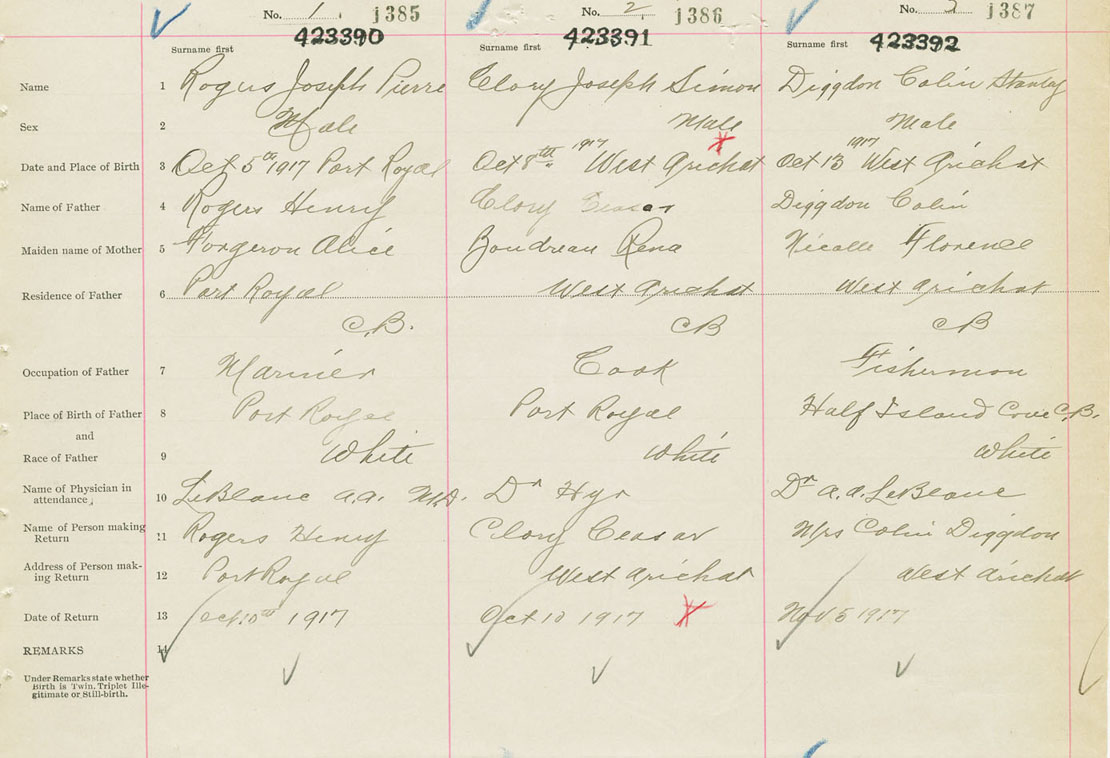 No. 1. j385 No. 2 j386 No. 3 j387
423390 423391 423392
Surname first Surname first Surname first
Name 1 Rogers Joseph Pierre Clory Joseph Simon Diggdon Colin Stanley
Sex 2 Male Male Male
Date and Place of Birth 3 Oct 5th 1917 Port Royal Oct 8th 1917 West Arichat Oct 13 1917 West Arichat
Name of Father 4 Rogers Henry Clory Ceasar Diggdon Colin
Maiden name of Mother 5 Forgeron Alice Boudreau Rena Nicolle Florence
Residence of Father 6 Port Royal West Arichat West Arichat
C.B. CB CB
Occupation of Father 7 Marinier Cook Fisherman
Place of Birth of Father 8 Port Royal Port Royal Half Island Cove C.B.
and
Race of Father 9 White White White
Name of Physician in
attendance, 10 LeBlanc A.A. M.D. Dr A.A. LeBlanc
Name of Person making
Return 11 Rogers Henry Clory Ceasar Mrs Colin Diggdon
Address of Person mak-
ing Return 12 Port Royal West Arichat West Arichat
Date of Return 13 Oct 10th 1917 Oct 10 1917 Nov 5 1917
REMARKS 14
Under Remarks state whether
Birth is Twin, Triplet Ille-
gitimate or Still-birth.